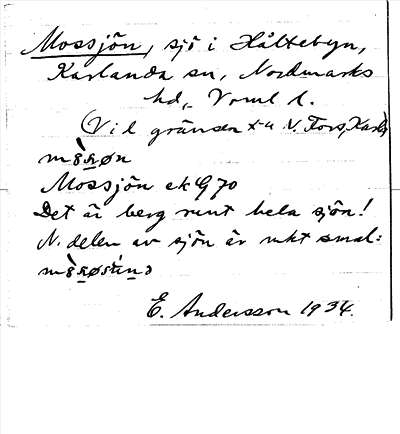 Mossjön, sjö i Håltebyn,
Karlanda sn, Nordmarks
hd, Vrml l.
(Vid gränsen t. N. Fors, Karls
Mossjön ek G 70
Det är berg runt hela sjön!
N. delen av sjön är mkt smal:
E. Andersson 1934.